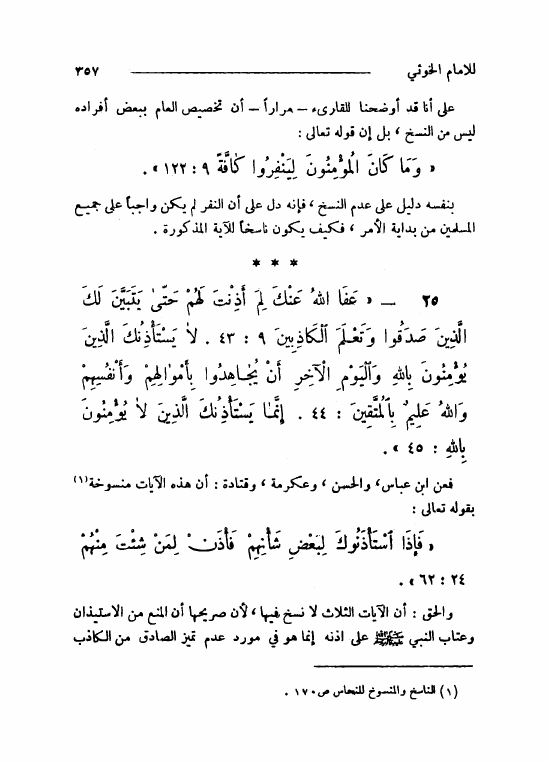 للامام الخوئي ٣٥٧
على أنا قد أوضحنا للقارىء – مراراً – أن تخصيص العام ببعض أفراده
ليس من النسخ ، بل إن قوله تعالى :
« وَمَا كَانَ الْمُؤْمِنُونَ لِيَنْفِرُوا كَافَّةً ٩ : ١٢٢ » .
بنفسه دليل على عدم النسخ ، فإنه دل على أن النفر لم يكن واجباً على جميع
المسلمين من بداية الأمر ، فكيف يكون ناسخاً للآية المذكورة .
* * *
٢٥ – « عَفَا اللهُ عَنْكَ لِمَ أَذِنْتَ لَهُمْ حَتّىٰ يَتَبَيَّنَ لَكَ
الَّذِينَ صَدَقُوا وَتَعْلَمَ الْكَاذِبِينَ ٩ : ٤٣ . لَا يَسْتَأْذِنُكَ الَّذِينَ
يُؤْمِنُونَ بِاللهِ وَالْيَوْمِ الْآخِرِ أَنْ يُجَاهِدُوا بِأَمْوَالِهِمْ وَأَنْفُسِهِمْ
وَاللهُ عَلِيمٌ بِالْمُتَّقِينَ : ٤٤ . إِنَّمَا يَسْتَأْذِنُكَ الَّذِينَ لَا يُؤْمِنُونَ
بِاللهِ : ٤٥ » .
فعن ابن عباس، والحسن ، وعكرمة ، وقتادة : أن هذه الآيات منسوخة (١)
بقوله تعالى :
« فَإِذَا اسْتَأْذَنُوكَ لِبَعْضِ شَأْنِهِمْ فَأْذَنْ لِمَنْ شِئْتَ مِنْهُمْ
٢٤ : ٦٢ » .
والحق : أن الآيات الثلاث لا نسخ فيها ، لأن صريحها أن المنع من الاستيذان
وعتاب النبي ﷺ على اذنه إنما هو في مورد عدم تميز الصادق من الكاذب
(١) الناسخ والمنسوخ للنحاس ص ١٧٠ .